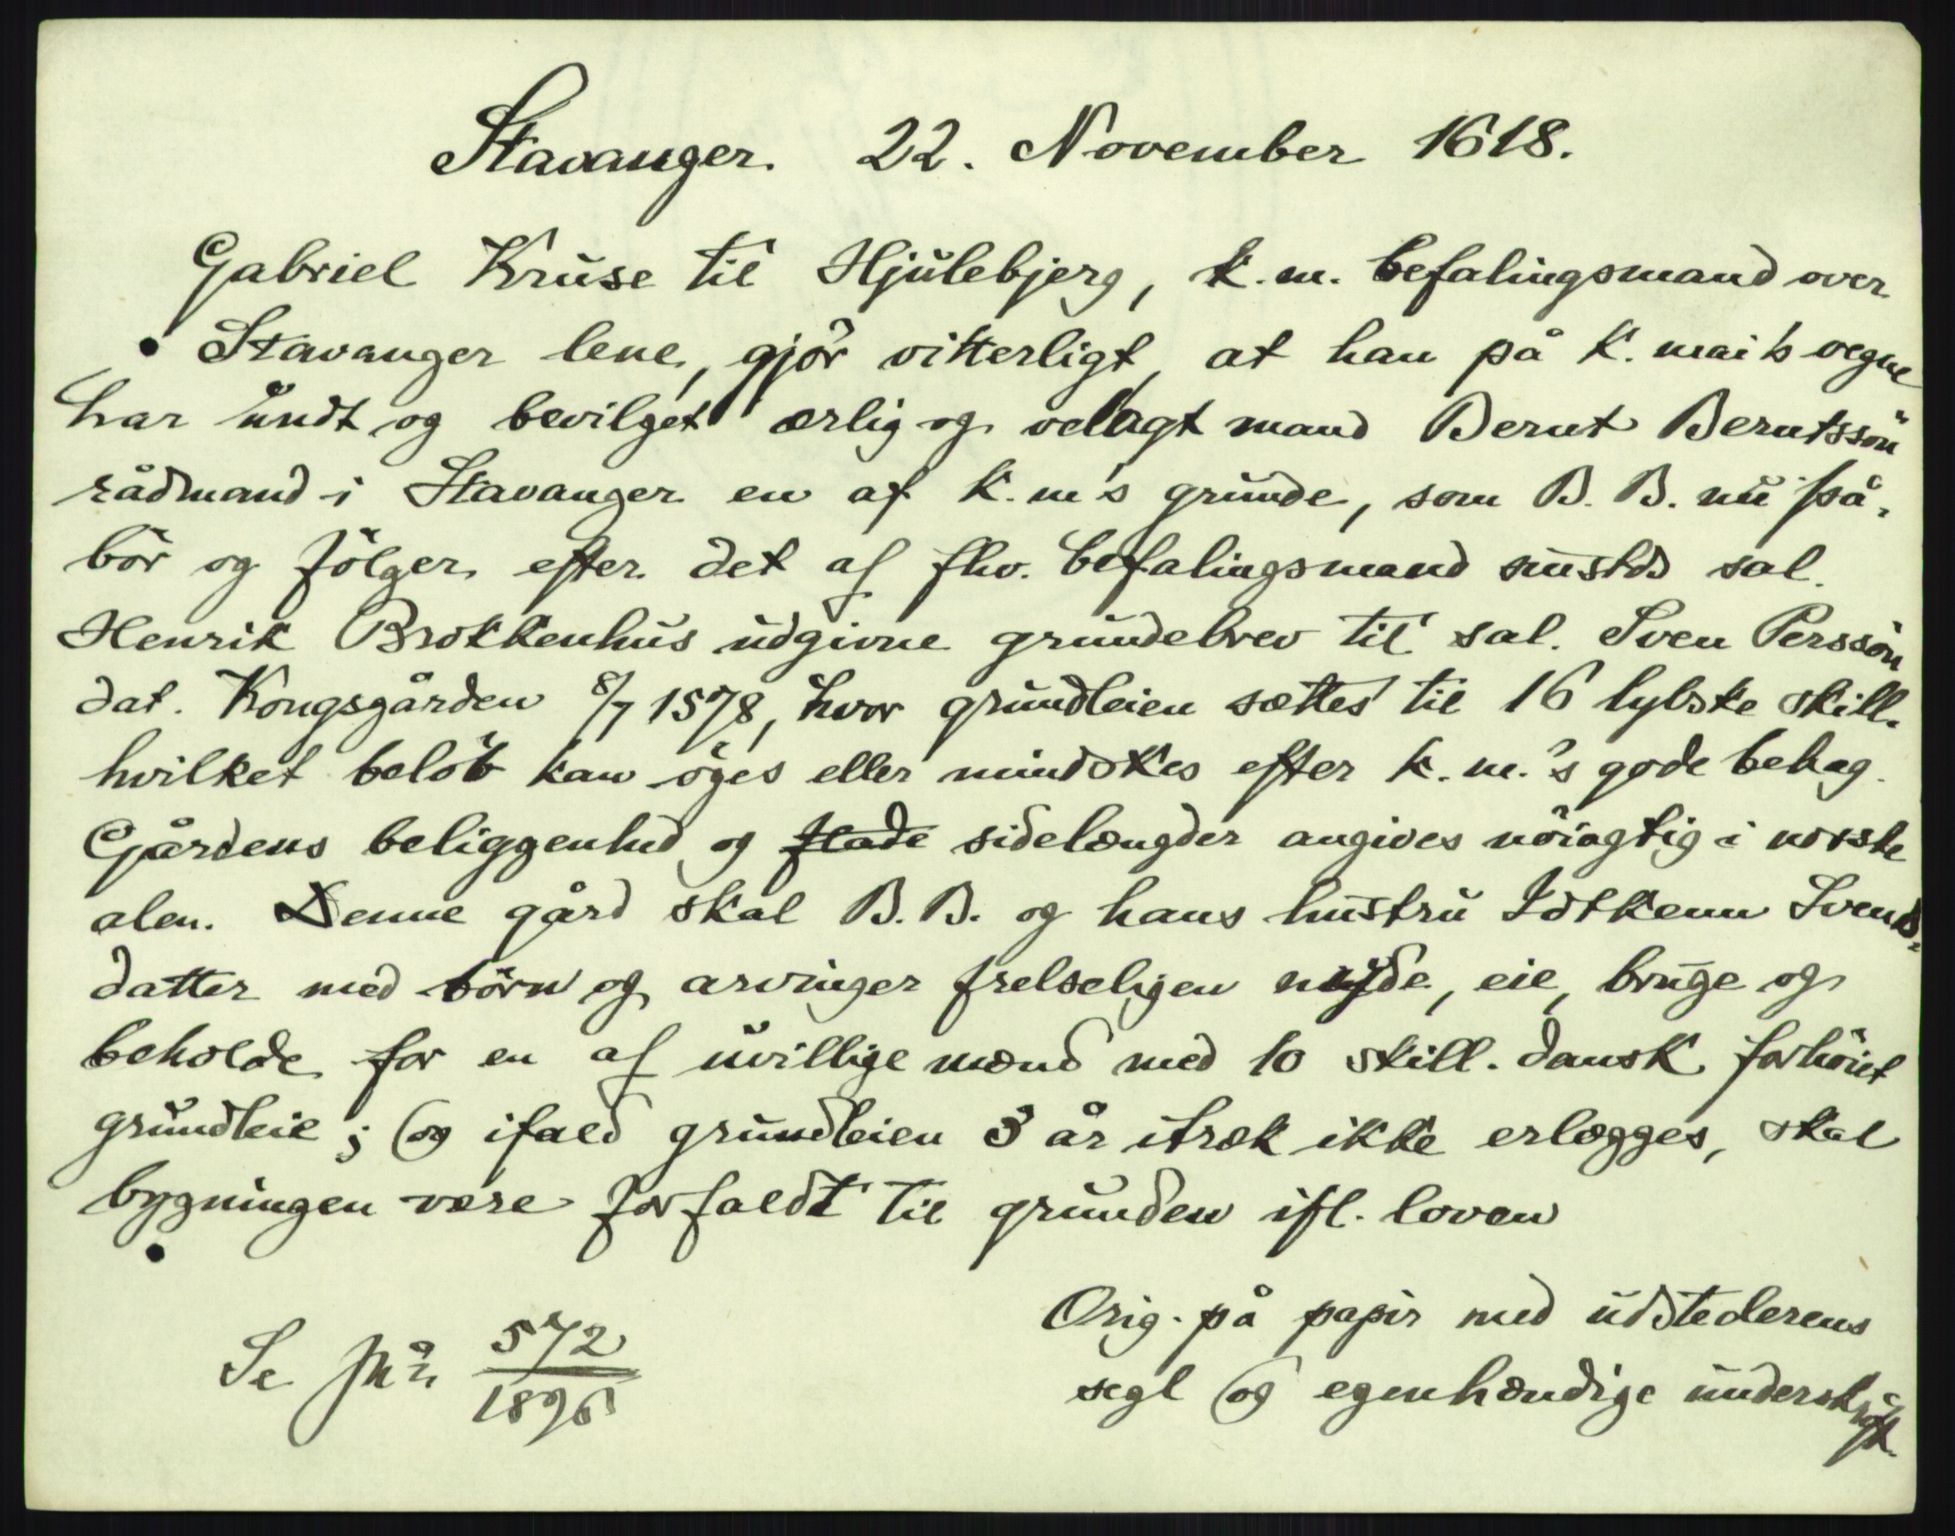 Stavanger. 22. November 1618.
Gabriel Kruse til Hjulebjerg, k.m. befalingsmand over
Stavanger lene, gjör vitterligt, at han på k. mai's vegne
har undt og bevilget ærlig og velagt mand Bernt Berntssön
rådmand i Stavanger en af k.m's grunde, som B.B. nu på-
bör og fölger efter det af fhv. befalingsmand smstds sal.
Henrik Brokkenhus udgivne grundebrev til sal. Sven Perssön
dat. Kongsgården 8/7 1578, hvor grundleien sættes til 16 lybske skill.
hvilket belöb kan öges eller mindskes efter k.m.'s gode behag.
Gårdens beliggenhed og flade sidelængder angives nöiagtig i norske
alen. Denne gård skal B.B. og hans hustru Idtkenn Svends-
datter med börn og arvinger frelseligen nyde, eie, bruge og
beholde for en af uvillige mænd med 10 skill. dansk forhöiet
grundleie; og ifald grundleien 3 år itræk ikke erlægges, skal
bygningen være forfaldt til grunden ifl. loven
Orig. på papir med udstederens
segl og egenhændige underskrift.
Se 572
1896